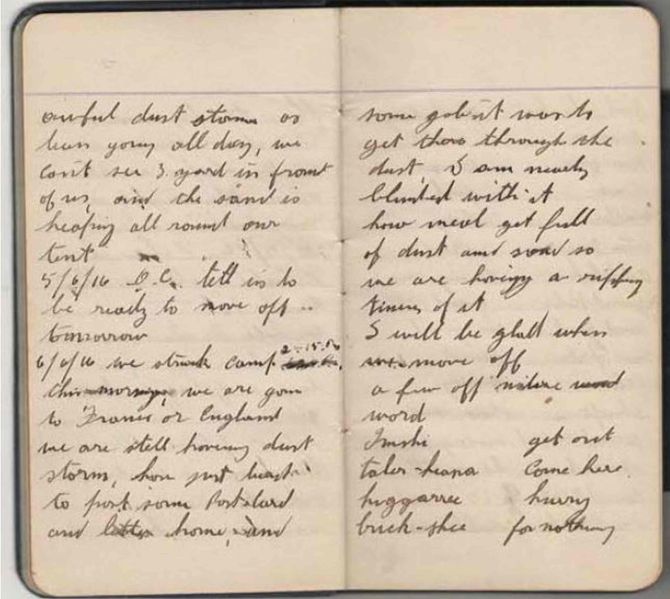 awful dust storm as
bean going all day, we
cant see 3 yard in front
of us, and the sand is
heaping all round our
tent
5/6/16 O.C. tell us to
be ready to move off
tomorrow
6/6/16 we struck camp 2-15 Pm
this morning, we are goin
to France or England
we are still having dust
storm, have just been
to post some Postcard
and letter home, and
some gob it was to
get there through the
dust, I am nearly
blinded with it
how meal get full
of dust and sand so
we are having a ripping
times of it
I will be glad when
we move off
a few off native word
word
Imshi get out
taler-heana Come here
huggarree hurry
buck-shee for nothing